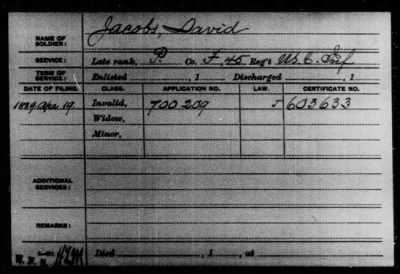 NAME OF SOLDIER: Jacobs, David
SERVICE: Late rank, P. Co. F, 45 Reg't U.S.C. Inf
TERM OF SERVICE: Enlisted , 1 Discharged , 1
DATE OF FILING. CLASS. APPLICATION NO. LAW. CERTIFICATE NO.
1889 Apr 19. Invalid, 700209 603633
Widow,
Minor,
ADDITIONAL SERVICES:
REMARKS:
Died , 1 , at